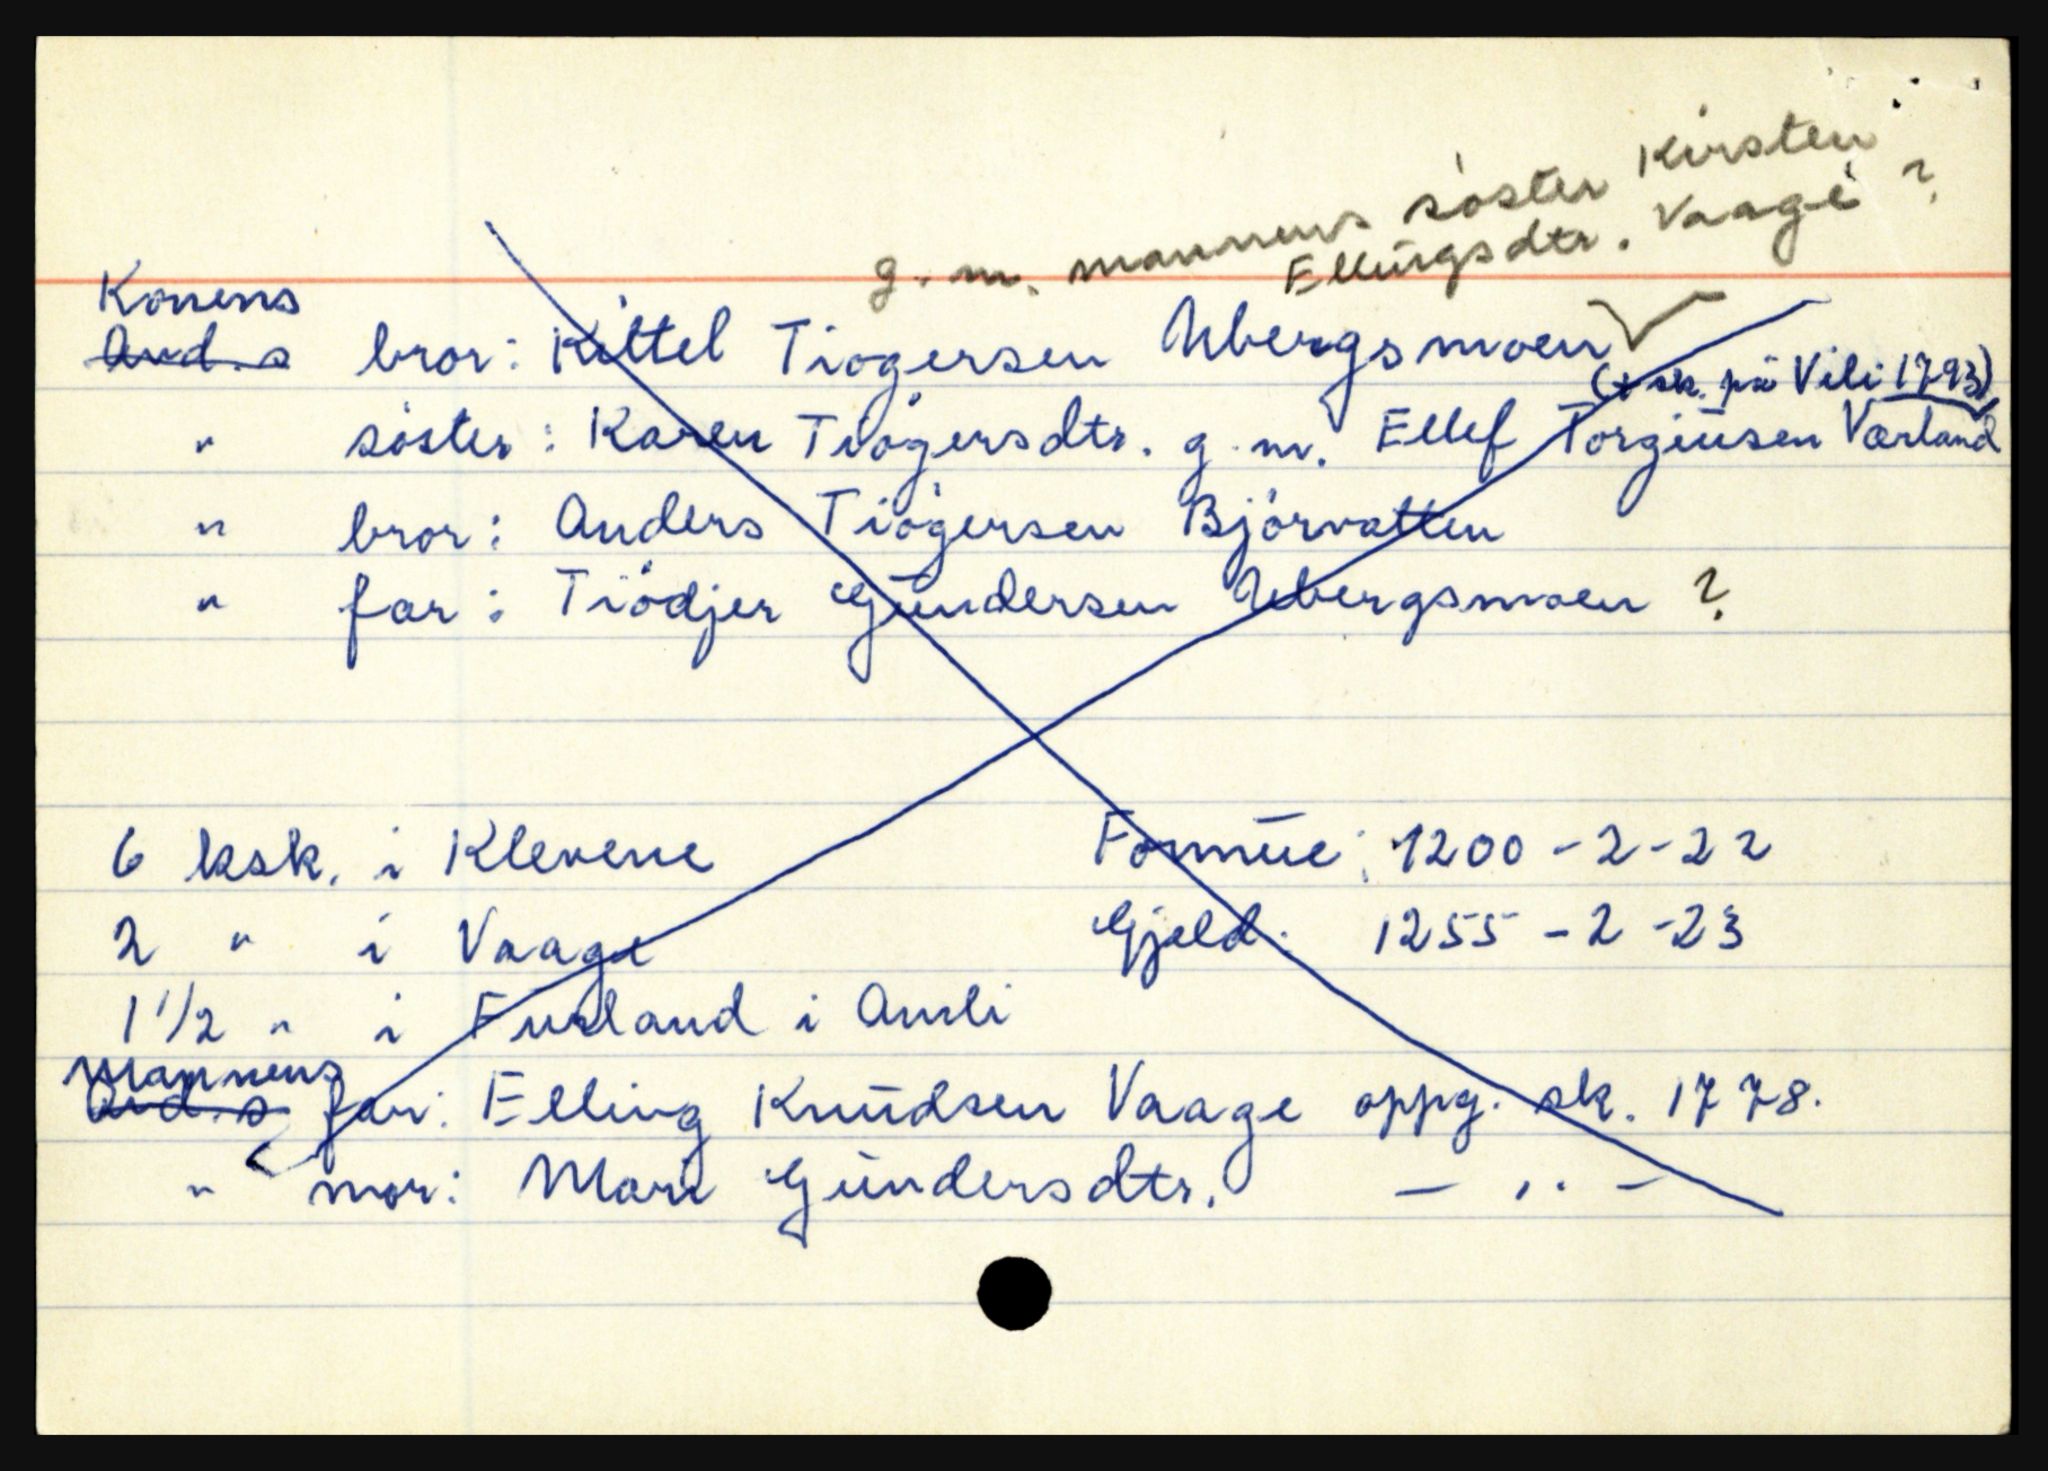 g. m. mannens söster Kirsten
Ellingsdtr. Vaage ?
Konens
Avd. s bror: Kittel Tiogersen Ubergsmoen
(+ sk. på Vili 1793)
" söster: Karen Tiögersdtr. g. m. Ellef Torgiusen Værland
" bror: Anders Tiögersen Björvatten
" far: Tiödjer Gundersen Ubergsmoen ?
6 ksk. i Klevene Formue: 1200 - 2 - 22
2 " i Vaage Gjeld: 1255 - 2 - 23
1 1/2 " i Furland i Amli
Mannens
Avd. s far: Elling Knudsen Vaage oppg. sk. 1778.
" mor: Mari Gundersdtr. — " —